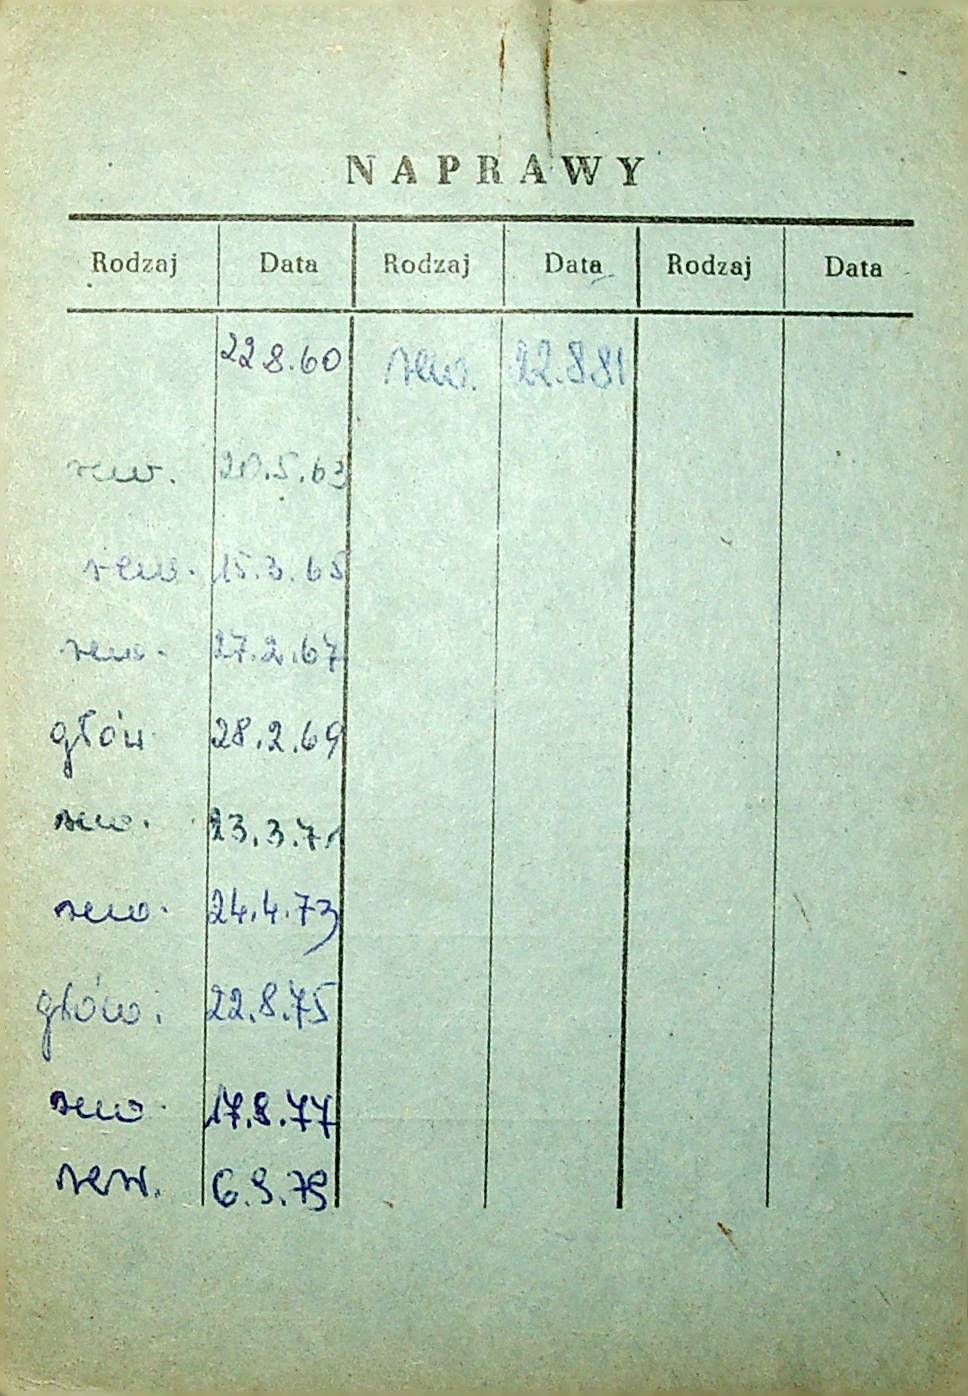 NAPRAWY
Rodzaj Data Rodzaj Data Rodzaj Data
22.8.60 rew. 22.8.81
rew. 20.5.63
rew. 15.3.65
rew. 27.2.67
głów 28.2.69
rew. 23.3.71
rew. 24.4.73
głów. 22.8.75
rew. 17.8.77
rew. 6.9.79